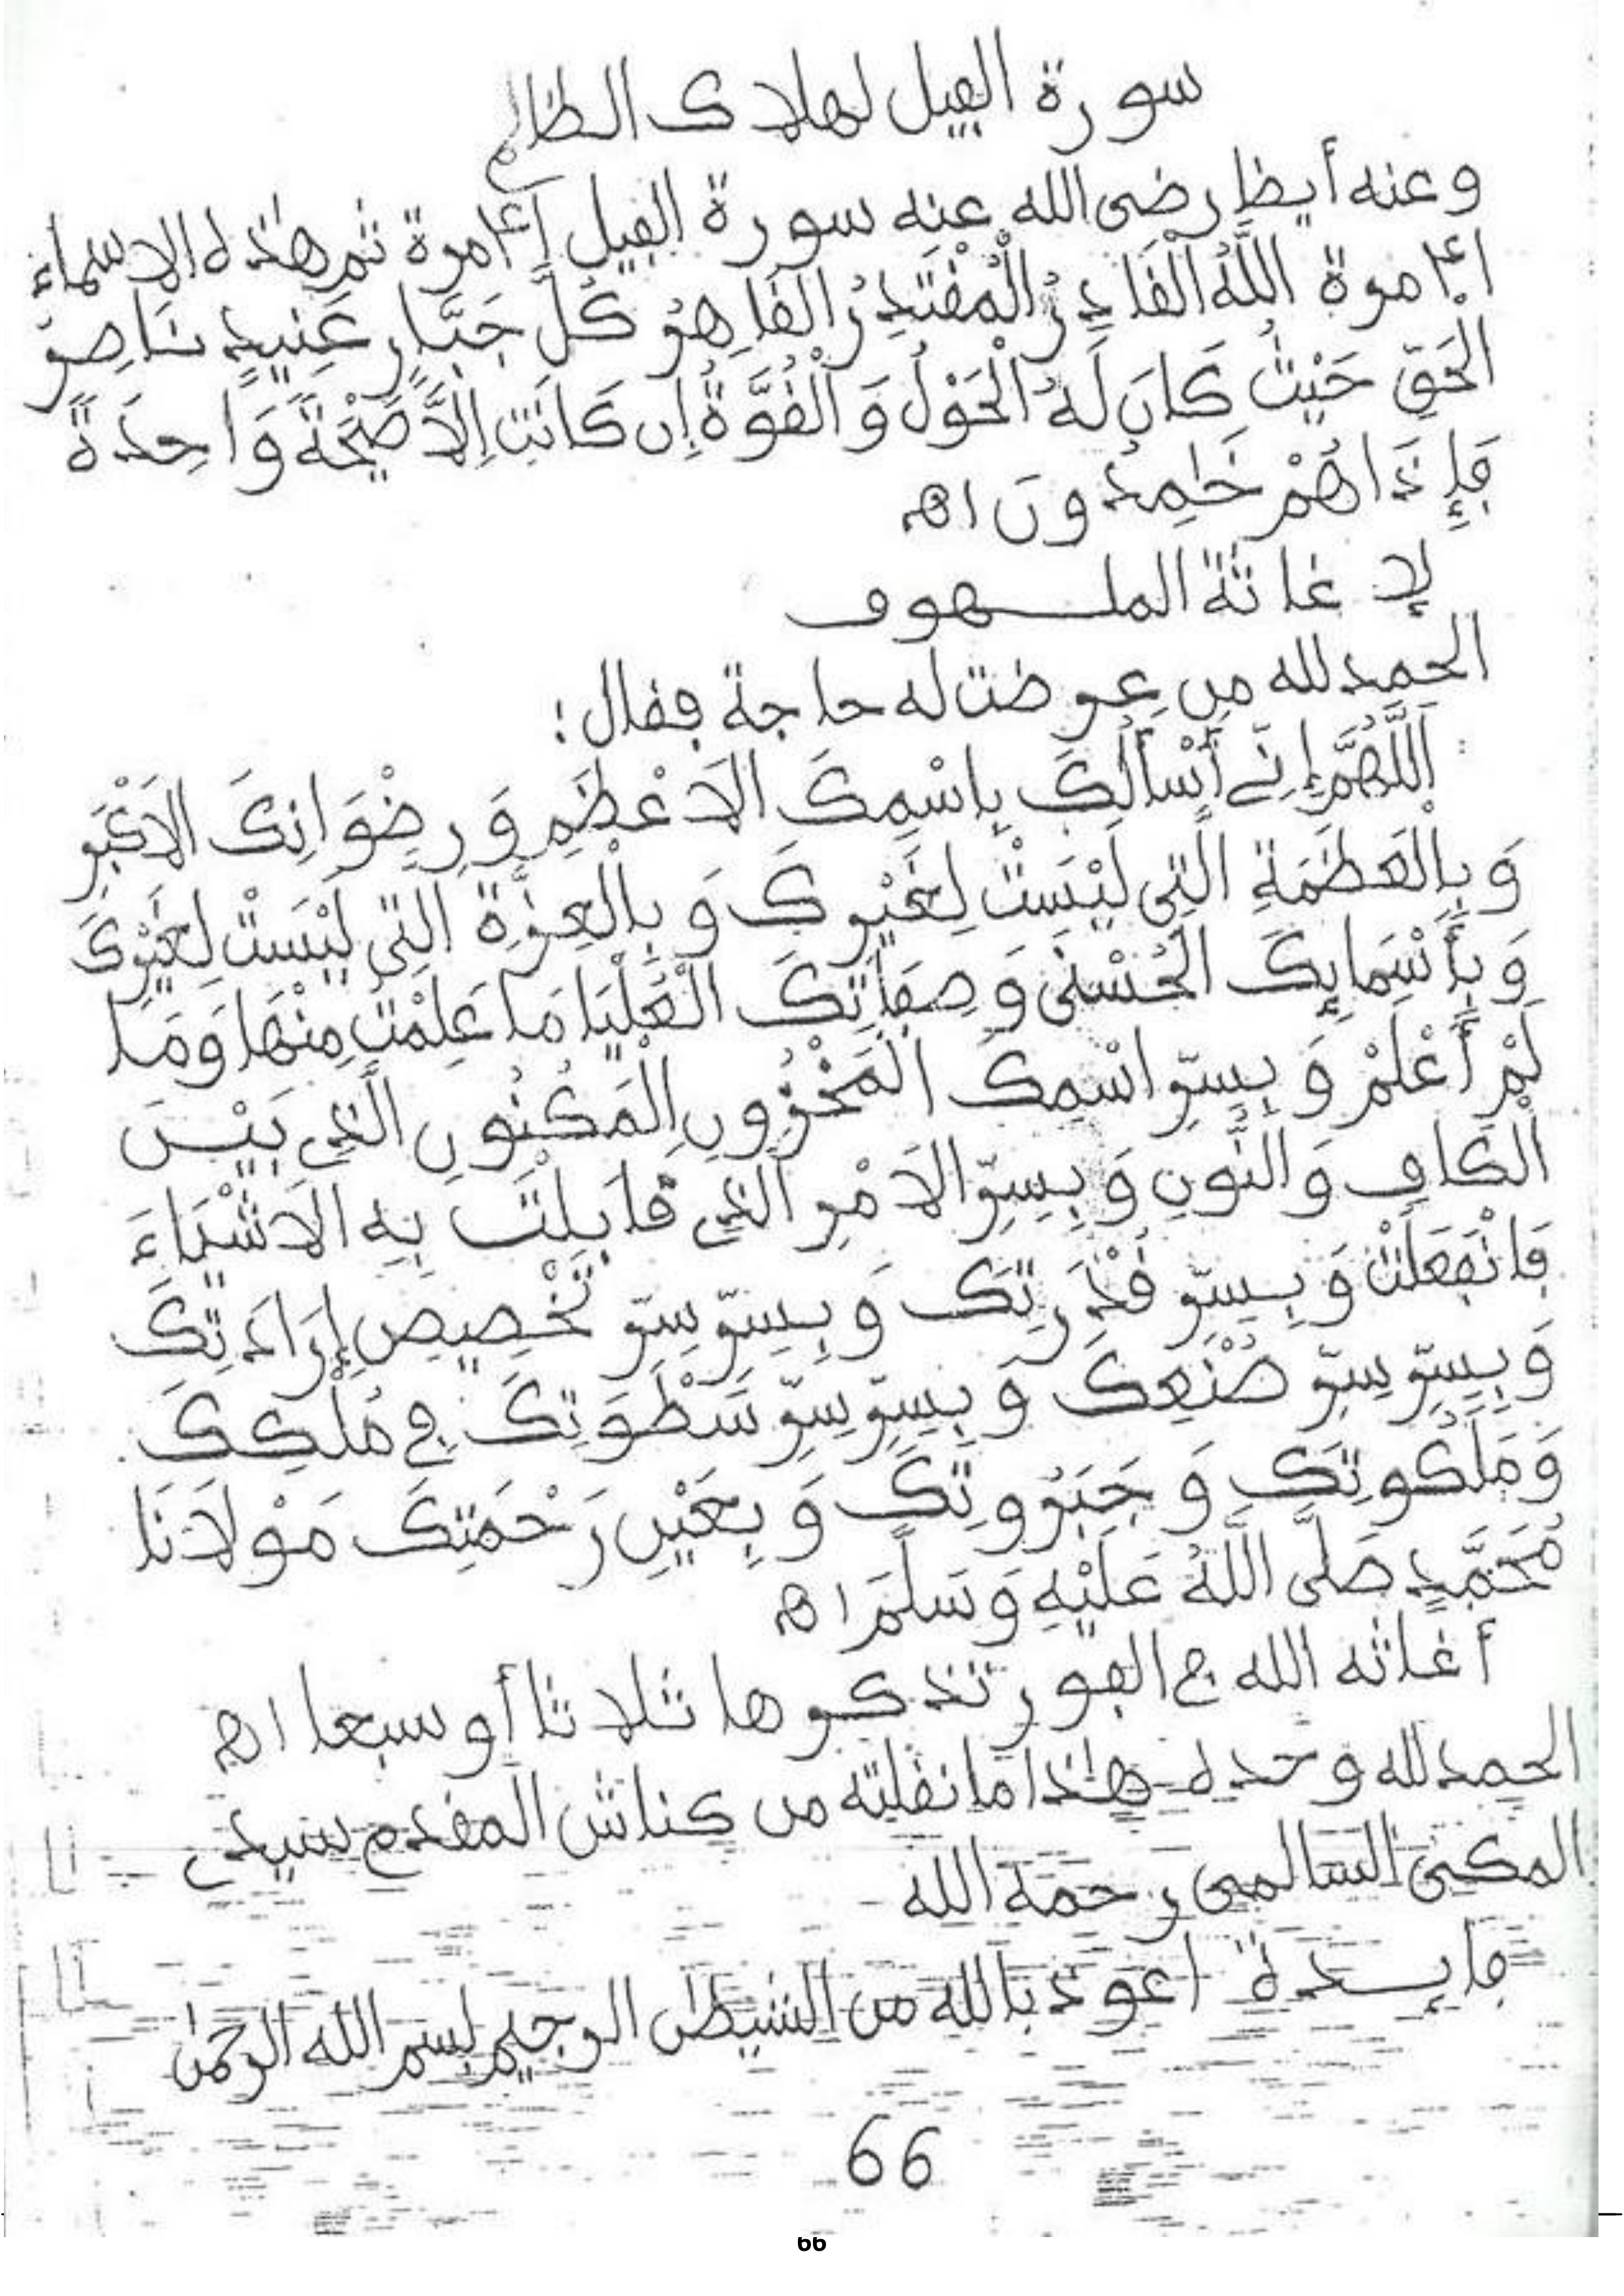 سورة الفيل لهلاك الظالم
وعنه أيظا رضى الله عنه سورة الفيل مرة ثم هذه الاسماء
مرة اللَّهُ الْقَادِرُ الْمُقْتَدِرُ الْقَاهِرُ كُلَّ جَبَّارٍ عَنِيدٍ نَاصِرُ
الْحَقِّ حَيْثُ كَانَ لَهُ الْحَوْلُ وَالْقُوَّةُ إِن كَانَتِ اِلَّا صَيْحَةً وَاحِدَةً
فَإِذَاهُمْ خَٰمِدُونَ اهـ
لإغاثة الملـهوف
الحمد لله من عرضت له حاجة فقال :
اَللَّهُمَّ إِنِّي أَسْأَلُكَ بِاسْمِكَ الاَعْظَمِ وَرِضْوَانِكَ الاَكْبَرِ
وَبِالْعَظَمَةِ الَّتِي لَيْسَتْ لِغَيْرِكَ وَبِالْعِزَّةِ الَّتِي لَيْسَتْ لِغَيْرِكَ
وَبِأَسْمَايِكَ الْحُسْنَى وَصِفَاتِكَ الْعُلْيَا مَا عَلِمْتُ مِنْهَا وَمَا
لَمْ أَعْلَمْ وَبِسِرِّ اسْمِكَ الْمَخْزُونِ الْمَكْنُونِ الَّذِي بَيْـنَ
الْكَافِ وَالنُّونِ وَبِسِرِّ الاَمْرِ الَّذِي قَابَلْتَ بِهِ الاَشْيَاءَ
فَانْفَعَلَتْ وَبِسِرِّ قُدْرَتِكَ وَبِسِرِّ سِرِّ تَخْصِيصِ إِرَادَتِكَ
وَبِسِرِّ سِرِّ صُنْعِكَ وَبِسِرِّ سِرِّ سَطْوَتِكَ فِي مُلْكِكَ
وَمَلَكُوتِكَ وَجَبَرُوتِكَ وَبِعَيْنِ رَحْمَتِكَ مَوْلَانَا
مُحَمَّدٍ صَلَّى اللَّهُ عَلَيْهِ وَسَلَّمَ اهـ
أغاثه الله في الفور تذكرها ثلاثا أو سبعا اهـ
الحمد لله وحده هٰذا ما نقلته من كناش المقدم سيدي
المكي السالمي رحمه الله
فايــدة اعوذ بالله من الشيطٰن الرجيم بسم الله الرحمٰن
66
66